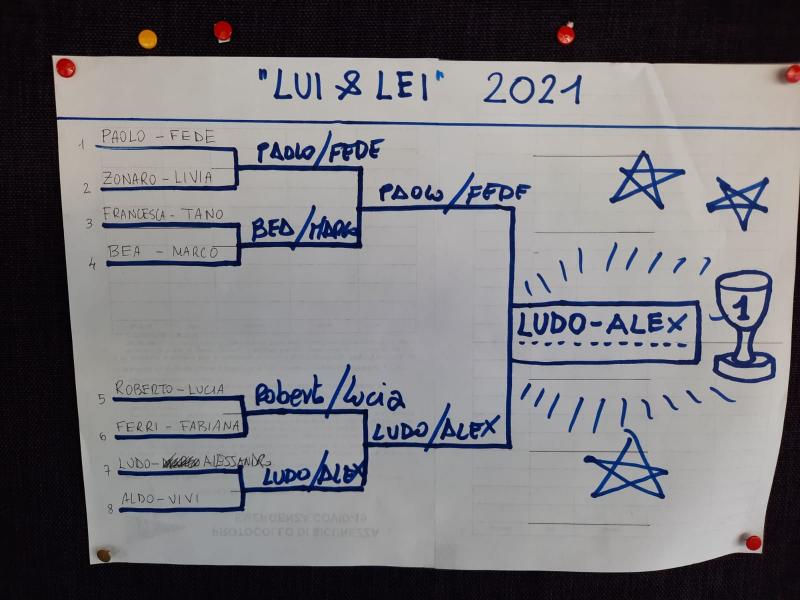 "LUI & LEI" 2021
1 PAOLO - FEDE
2 ZONARO - LIVIA
PAOLO/FEDE
3 FRANCESCA - TANO
4 BEA - MARCO
BEA/MARCO
PAOLO/FEDE
5 ROBERTO - LUCIA
6 FERRI - FABIANA
Robert/Lucia
7 LUDO - ALESSANDRO
8 ALDO - VIVI
LUDO/ALEX
LUDO/ALEX
LUDO-ALEX
1
EMERGENZA COVID-19
PROTOCOLLO DI SICUREZZA